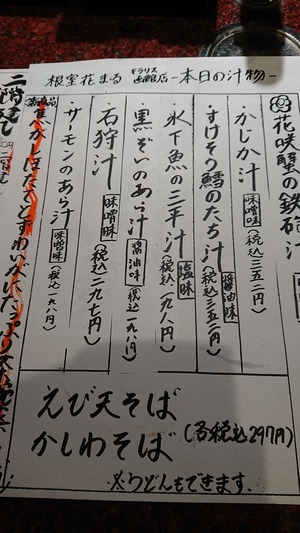 根室花まる キラリス函館店 -本日の汁物-
花咲蟹の鉄砲汁
・かじか汁 味噌味 (税込三五二円)
・すけそう鱈のたち汁 醤油味 (税込三五二円)
・氷下魚の三平汁 塩味 (税込一九八円)
・黒ぞいのあら汁 醤油味 (税込一九八円)
・石狩汁 味噌味 (税込二九七円)
・サーモンのあら汁 味噌味 (税込一九八円)
えび天そば
かしわそば (各税込297円)
※うどんもできます.